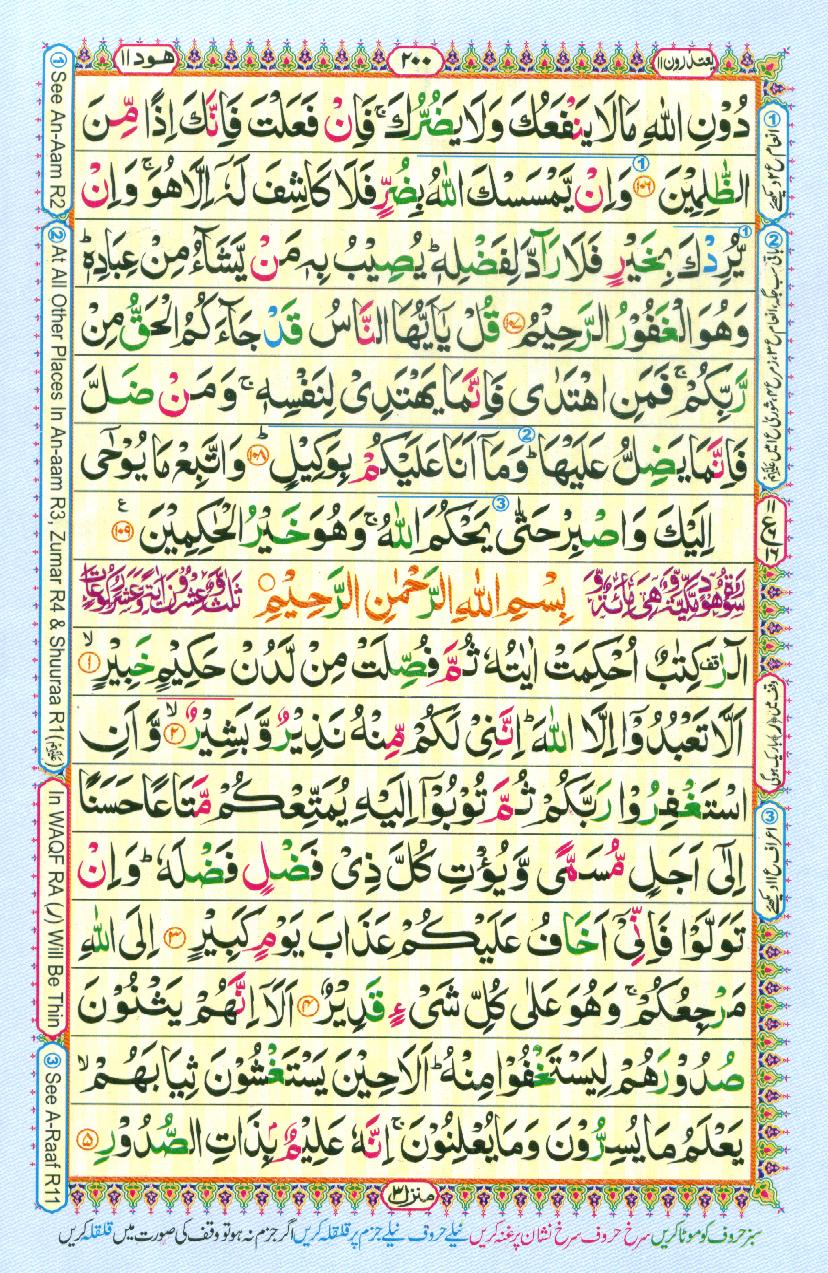 يعتذرون ۱۱
۲۰۰
هود ۱۱
دُوْنِ اللّٰهِ مَا لَا يَنْفَعُكَ وَلَا يَضُرُّكَ ۚ فَاِنْ فَعَلْتَ فَاِنَّكَ اِذًا مِّنَ
الظّٰلِمِيْنَ ۝۱۰۶ وَاِنْ يَّمْسَسْكَ اللّٰهُ بِضُرٍّ فَلَا كَاشِفَ لَهٗۤ اِلَّا هُوَ ۚ وَاِنْ
يُّرِدْكَ بِخَيْرٍ فَلَا رَآدَّ لِفَضْلِهٖ ؕ يُصِيْبُ بِهٖ مَنْ يَّشَآءُ مِنْ عِبَادِهٖ ؕ
وَهُوَ الْغَفُوْرُ الرَّحِيْمُ ۝۱۰۷ قُلْ يٰۤاَيُّهَا النَّاسُ قَدْ جَآءَكُمُ الْحَقُّ مِنْ
رَّبِّكُمْ ۚ فَمَنِ اهْتَدٰى فَاِنَّمَا يَهْتَدِىْ لِنَفْسِهٖ ۚ وَمَنْ ضَلَّ
فَاِنَّمَا يَضِلُّ عَلَيْهَا ؕ وَمَاۤ اَنَا عَلَيْكُمْ بِوَكِيْلٍ ؕ ۝۱۰۸ وَاتَّبِعْ مَا يُوْحٰۤى
اِلَيْكَ وَاصْبِرْ حَتّٰى يَحْكُمَ اللّٰهُ ۚ وَهُوَ خَيْرُ الْحٰكِمِيْنَ ۝۱۰۹ ع
سُوْرَةُ هُوْدٍ مَّكِّيَّةٌ وَّهِىَ مِائَةٌ وَّ
بِسْمِ اللّٰهِ الرَّحْمٰنِ الرَّحِيْمِ
ثَلٰثٌ وَّعِشْرُوْنَ اٰيَةً وَّعَشْرُ رُكُوْعَاتٍ
الٓرٰ ۟ كِتٰبٌ اُحْكِمَتْ اٰيٰتُهٗ ثُمَّ فُصِّلَتْ مِنْ لَّدُنْ حَكِيْمٍ خَبِيْرٍ ۙ ۝۱
اَلَّا تَعْبُدُوْۤا اِلَّا اللّٰهَ ؕ اِنَّنِىْ لَكُمْ مِّنْهُ نَذِيْرٌ وَّبَشِيْرٌ ۙ ۝۲ وَّاَنِ
اسْتَغْفِرُوْا رَبَّكُمْ ثُمَّ تُوْبُوْۤا اِلَيْهِ يُمَتِّعْكُمْ مَّتَاعًا حَسَنًا
اِلٰۤى اَجَلٍ مُّسَمًّى وَّيُؤْتِ كُلَّ ذِىْ فَضْلٍ فَضْلَهٗ ؕ وَاِنْ
تَوَلَّوْا فَاِنِّىْۤ اَخَافُ عَلَيْكُمْ عَذَابَ يَوْمٍ كَبِيْرٍ ۝۳ اِلَى اللّٰهِ
مَرْجِعُكُمْ ۚ وَهُوَ عَلٰى كُلِّ شَىْءٍ قَدِيْرٌ ۝۴ اَلَاۤ اِنَّهُمْ يَثْنُوْنَ
صُدُوْرَهُمْ لِيَسْتَخْفُوْا مِنْهُ ؕ اَلَا حِيْنَ يَسْتَغْشُوْنَ ثِيَابَهُمْ ۙ
يَعْلَمُ مَا يُسِرُّوْنَ وَمَا يُعْلِنُوْنَ ۚ اِنَّهٗ عَلِيْمٌۢ بِذَاتِ الصُّدُوْرِ ۝۵
منزل ۳
سبز حروف کو موٹا کریں سرخ حروف سرخ نشان پر غنہ کریں نیلے حروف نیلے جزم پر قلقلہ کریں اگر جزم نہ ہو تو وقف کی صورت میں قلقلہ کریں
① See An-Aam R2
② At All Other Places In An-aam R3, Zumar R4 & Shuuraa R1
In WAQF RA (ر) Will Be Thin
③ See A-Raaf R11